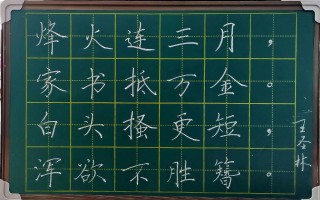 烽火连三月，
家书抵万金。
白头搔更短，
浑欲不胜簪。